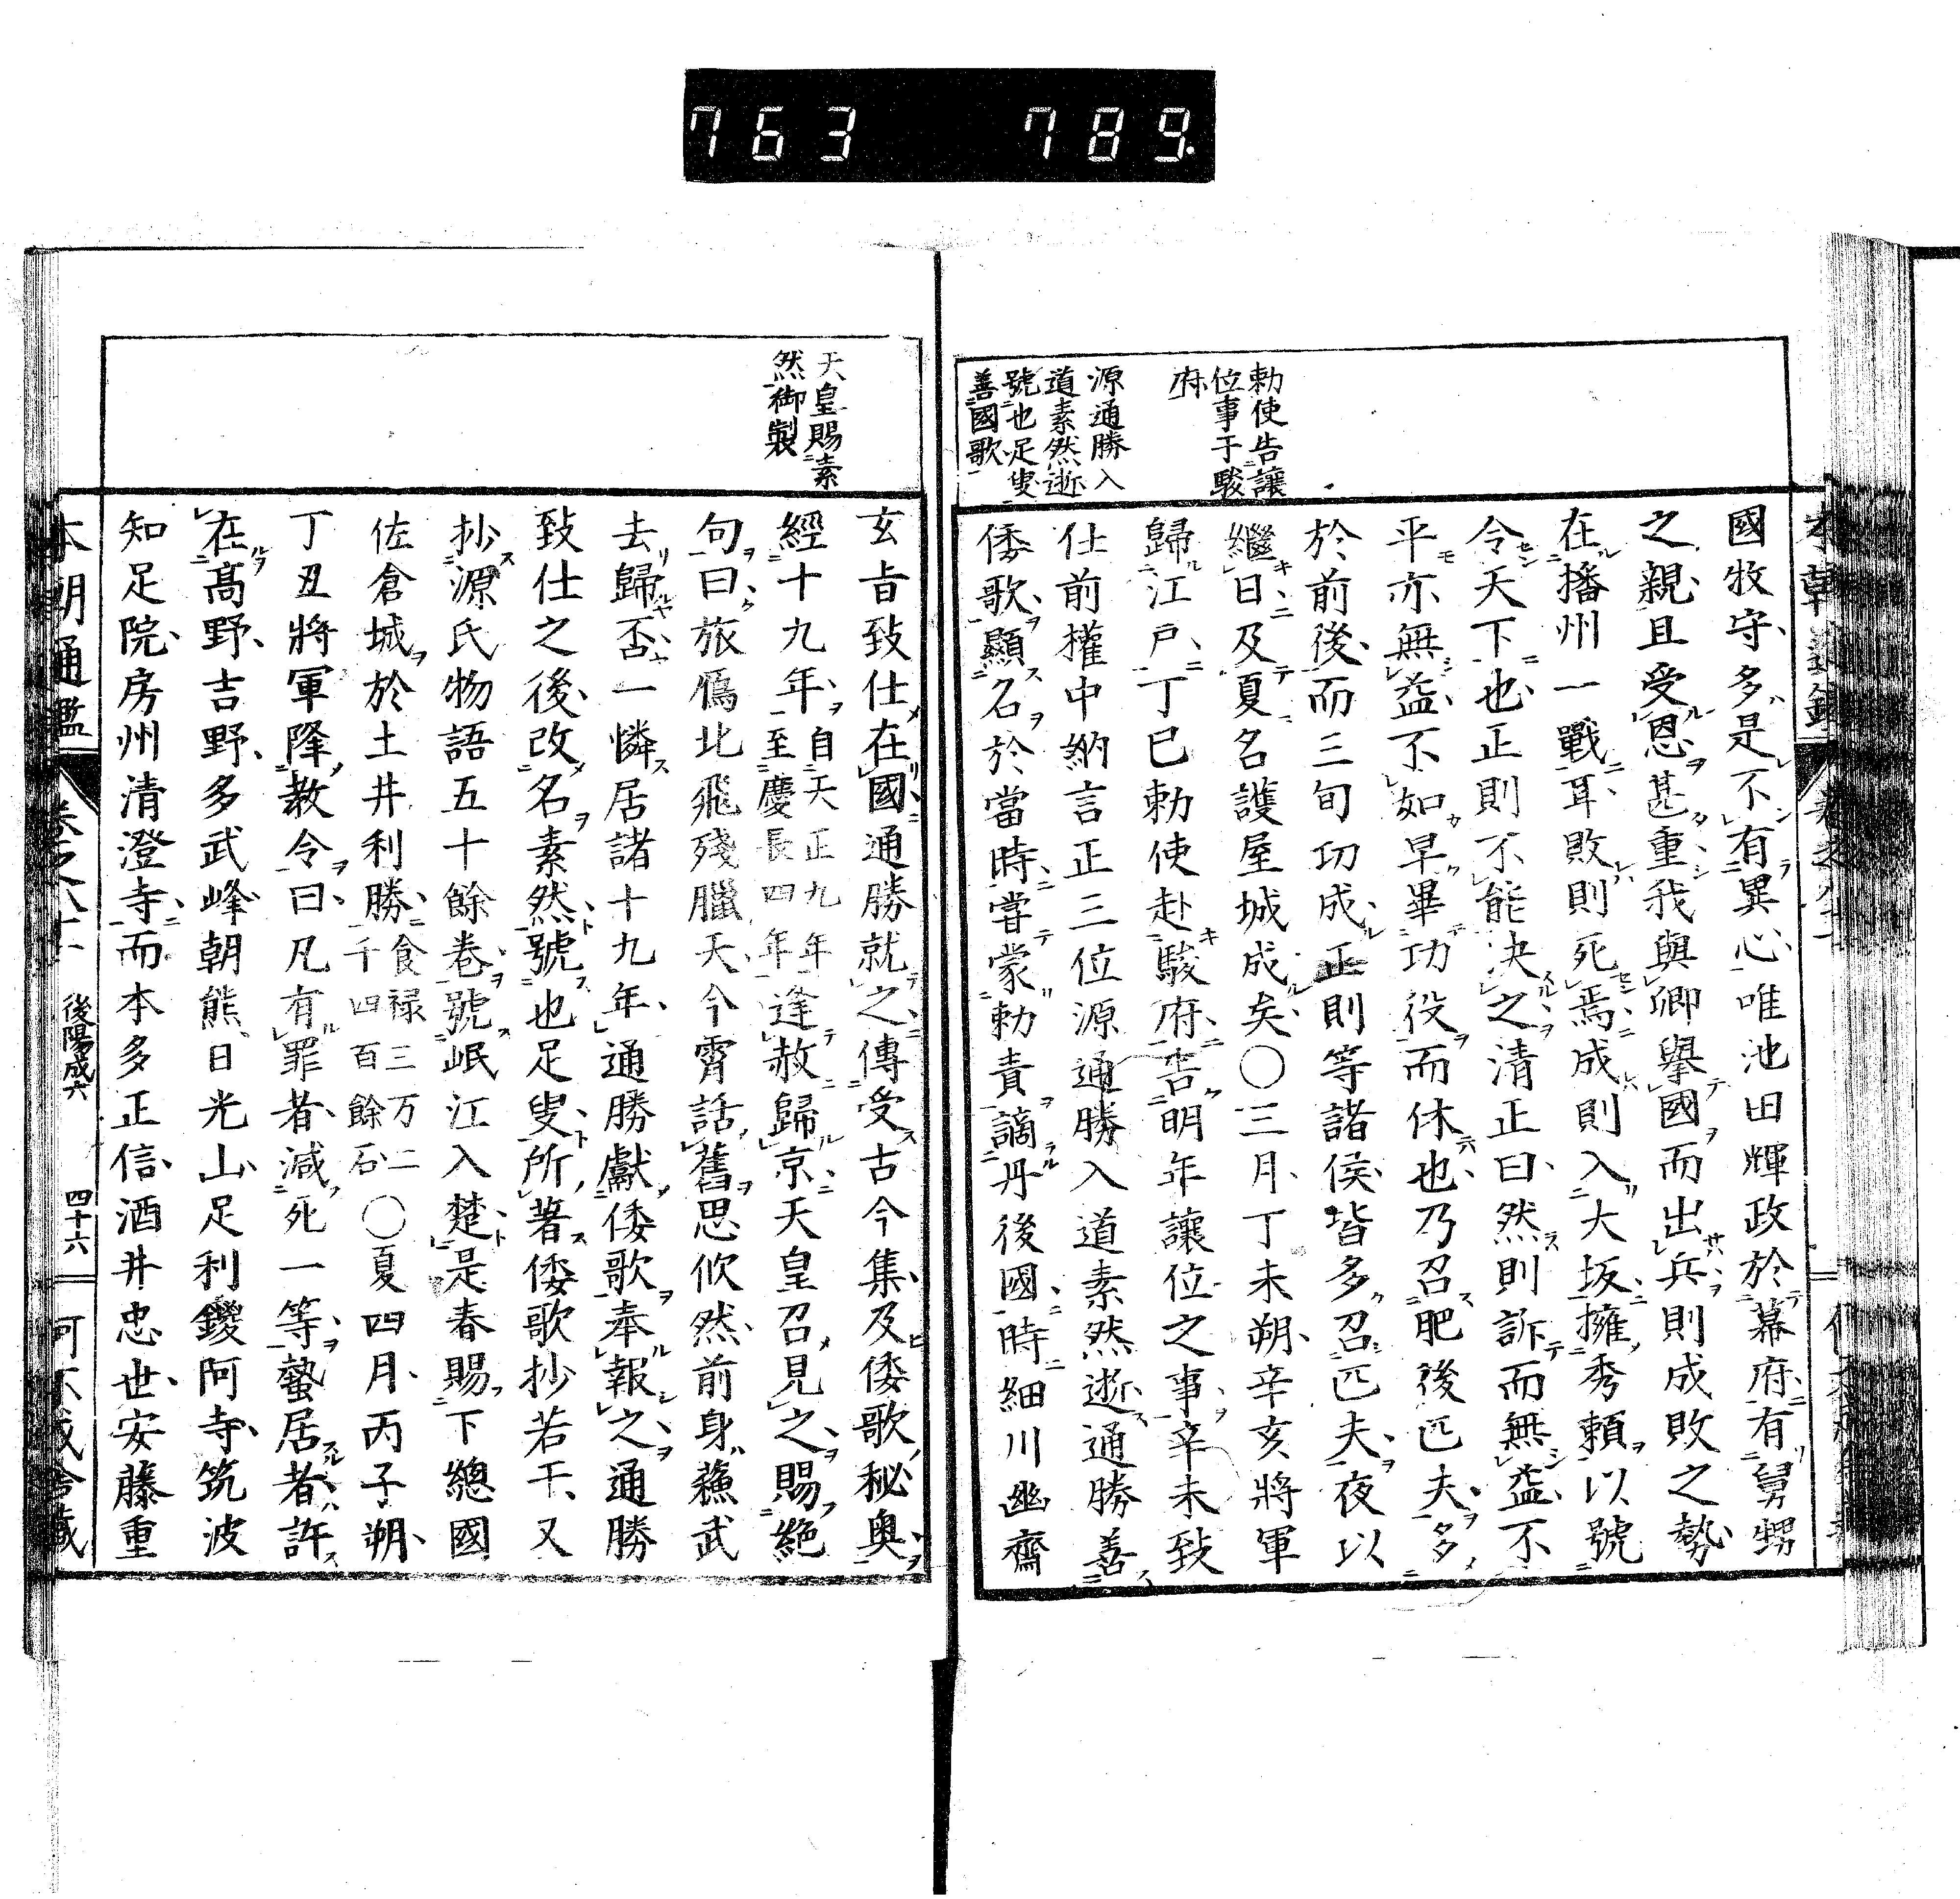 763 789.
勅使告讓
位事于駿
府
源通勝入
道素然逝
號也足叟
善國歌
國牧守多是不有異心唯池田輝政於幕府有舅甥
之親且受恩甚重我與卿擧國而出兵則成敗之勢
在播州一戰耳敗則死焉成則入大坂擁秀賴以號
令天下也正則不能決之清正曰然則訴而無益不
平亦無益不如早畢功役而休也乃召肥後匹夫多
於前後而三旬功成正則等諸侯皆多召匹夫夜以
繼日及夏名護屋城成矣〇三月丁未朔辛亥將軍
歸江戶丁巳勅使赴駿府告明年讓位之事辛未致
仕前權中納言正三位源通勝入道素然逝通勝善
倭歌顯名於當時嘗蒙勅責謫丹後國時細川幽齋
天皇賜素
然御製
玄旨致仕在國通勝就之傳受古今集及倭歌秘奥
經十九年自天正九年至慶長四年逢赦歸京天皇召見之賜絕
句曰旅鴈北飛殘臘天今霄話舊思佽然前身蘓武
去歸否一憐居諸十九年通勝獻倭歌奉報之通勝
致仕之後改名素然號也足叟所著倭歌抄若干又
抄源氏物語五十餘卷號岷江入楚是春賜下總國
佐倉城於土井利勝食禄三万二千四百餘石〇夏四月丙子朔
丁丑將軍降教令曰凡有罪者減死一等蟄居者許
在髙野吉野多武峰朝熊日光山足利鑁阿寺筑波
知足院房州清澄寺而本多正信酒井忠世安藤重
本朝通鑑 卷之八十 後陽成六 四十六